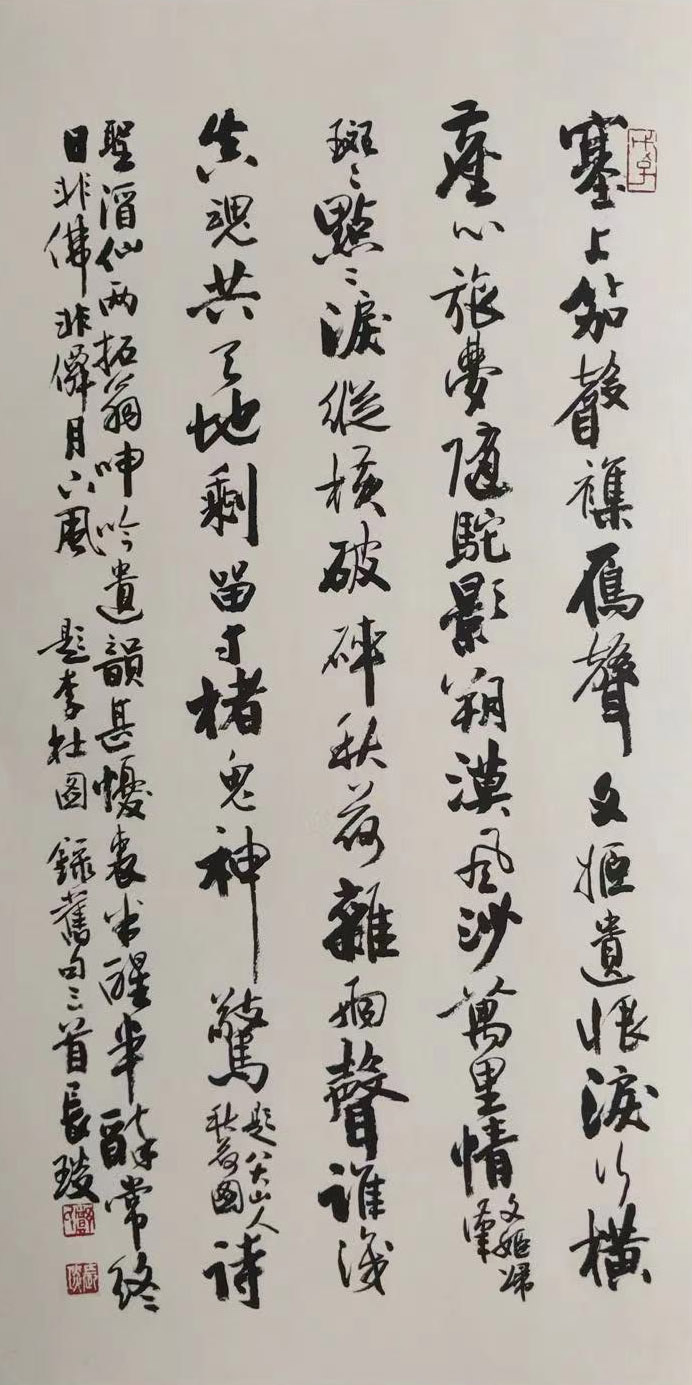 塞上笳聲襍雁聲文姬遺恨淚行橫
塵心旅夢隨駝影朔漠風沙萬里情 文姬歸漢
斑〻點〻淚縱橫破碎秋荷雜雨聲誰識
真魂共天地剩留寸楮鬼神驚 題八大山人秋荷圖 詩
聖酒仙两拓翁呻吟遺韻甚懮衷半醒半醉常終
日非佛非僊月下風 題李杜圖 錄舊句三首 長璇